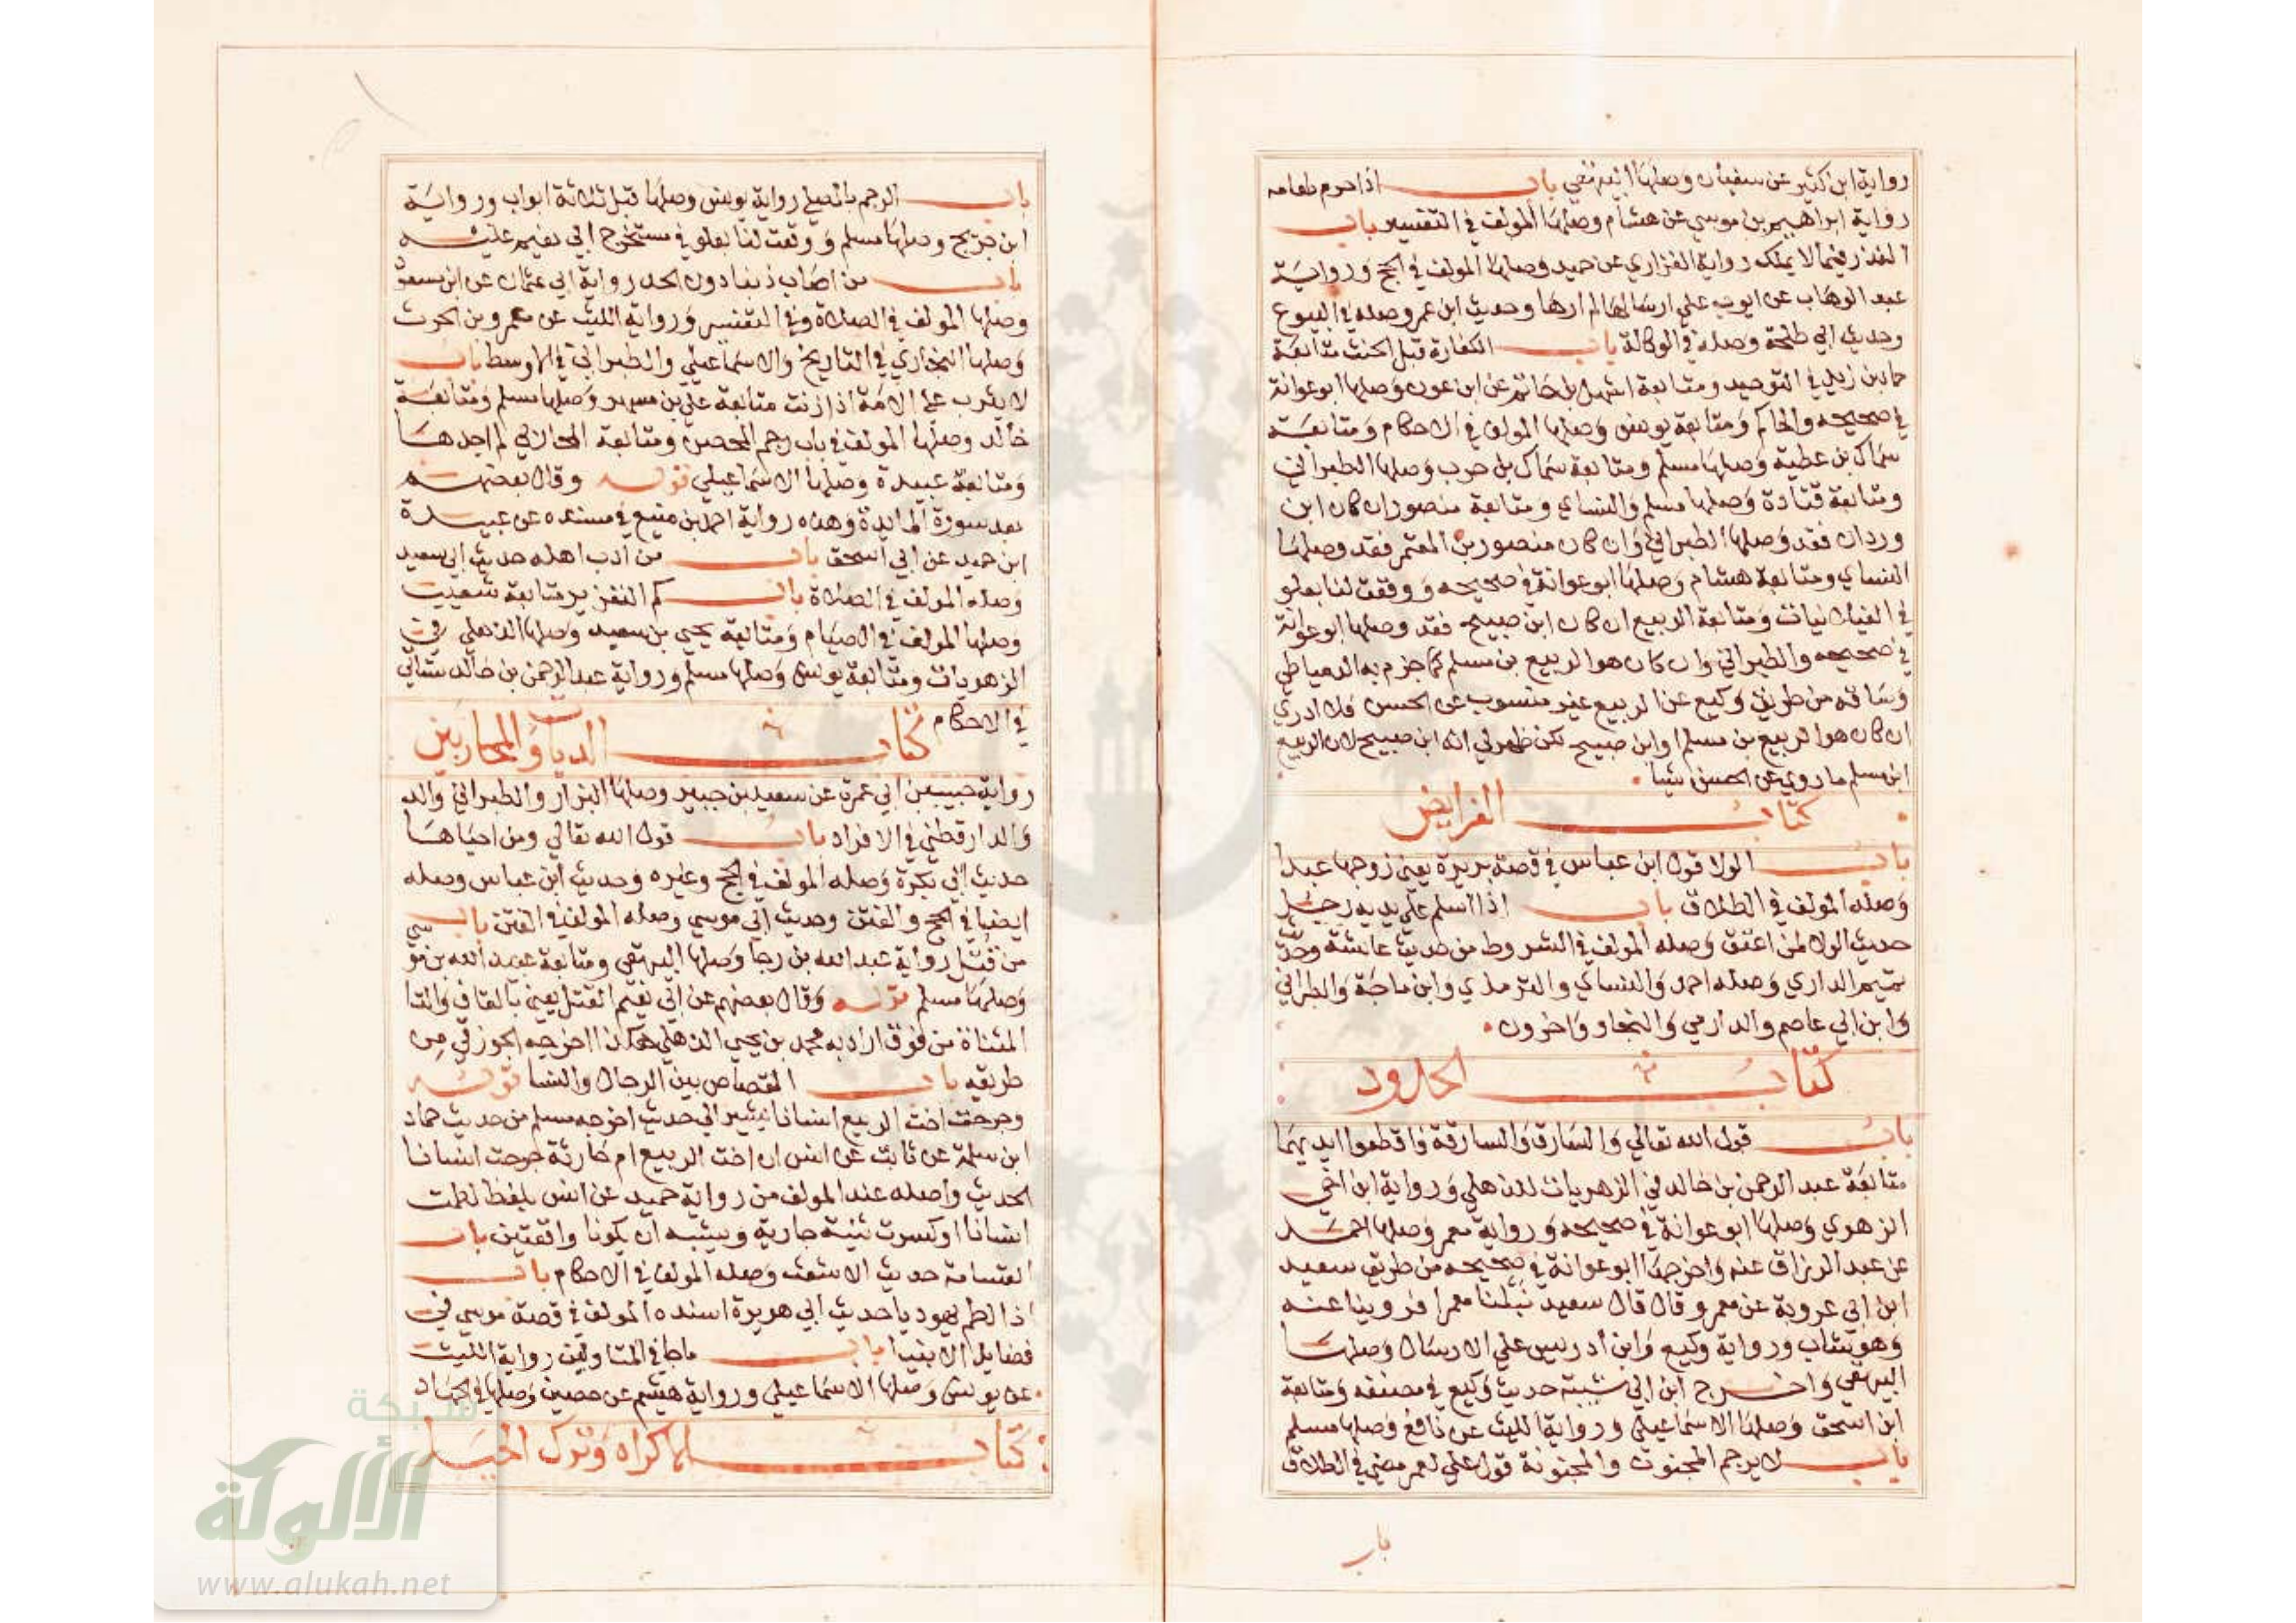 رواية ابن كثير عن سفيان وصلها البيهقي باب اذا حرم طعامه
رواية ابراهيم بن موسي عن هشام وصلها المولف في التفسير باب
النذر فيما لا يملك رواية الفزاري عن حميد وصلها المولف في الحج ورواية
عبد الوهاب عن ايوب علي ارسالها لم ارها وحديث ابن عمر وصله في البيوع
وحديث ابي طلحة وصله في الوكالة باب الكفارة قبل الحنث متابعة
حماد بن زيد في التوحيد ومتابعة اشهل بن حاتم عن ابن عون وصلها ابو عوانة
في صحيحه والحاكم ومتابعة يونس وصلها المولف في الاحكام ومتابعة
سماك بن عطية وصلها مسلم ومتابعة سماك بن حرب وصلها الطبراني
ومتابعة قتادة وصلها مسلم والنساي ومتابعة منصور ان كان ابن
وردان فقد وصلها الطبراني وان كان منصور بن المعتمر فقد وصلها
النساي ومتابعة هشام وصلها ابو عوانة في صحيحه ووقعت لنا بعلو
في الغيلانيات ومتابعة الربيع ان كان ابن صبيح فقد وصلها ابو عوانة
في صحيحه والطبراني وان كان هو الربيع بن مسلم كما جزم به الدمياطي
وساقه من طريق وكيع عن الربيع غير منسوب عن الحسن فلا ادري
ان كان هو الربيع بن مسلم او ابن صبيح لكن ظهر لي انه ابن صبيح لان الربيع
ابن مسلم ما روي عن الحسن شيا
كتاب الفرايض
باب الولا قول ابن عباس في قصة بريرة يعني زوجها عبدا
وصله المولف في الطلاق باب اذا اسلم علي يديه رجل
حديث الولا لمن اعتق وصله المولف في الشروط من حديث عايشة وحديث
تميم الداري وصله احمد والنساي والترمذي وابن ماجة والطبراني
وابن ابي عاصم والدارمي والنجاد واخرون
كتاب الحدود
باب قول الله تعالي والسارق والسارقة فاقطعوا ايديهما
متابعة عبد الرحمن بن خالد في الزهريات للذهلي ورواية ابن اخي
الزهري وصلها ابو عوانة في صحيحه ورواية معمر وصلها احمد
عن عبد الرزاق عنه واخرجها ابو عوانة في صحيحه من طريق سعيد
ابن ابي عروبة عن معمر وقال قال سعيد نبلنا معمرا فروينا عنه
وهو شاب ورواية وكيع وابن ادريس علي الارسال وصلها
البيهقي واخرج ابن ابي شيبة حديث وكيع في مصنفه ومتابعة
ابن اسحق وصلها الاسماعيلي ورواية الليث عن نافع وصلها مسلم
باب لا يرجم المجنون والمجنونة قول علي لعمر مضي في الطلاق
باب
باب الرجم بالمصلي رواية يونس وصلها قبل ثلاثة ابواب ورواية
ابن جريج وصلها مسلم ووقعت لنا بعلو في مستخرج ابي نعيم عليه
باب من اصاب ذنبا دون الحد رواية ابي عثمان عن ابن مسعود
وصلها المولف في الصلاة وفي التفسير ورواية الليث عن عمرو بن الحرث
وصلها البخاري في التاريخ والاسماعيلي والطبراني في الاوسط باب
لا يثرب علي الامة اذا زنت متابعة علي بن مسهر وصلها مسلم ومتابعة
خالد وصلها المولف في باب رجم المحصن ومتابعة المحاربي لم اجدها
ومتابعة عبيدة وصلها الاسماعيلي قوله وقال بعضهم
بعد سورة المايدة وهذه رواية احمد بن منيع في مسنده عن عبيدة
ابن حميد عن ابي اسحق باب من ادب اهله حديث ابي سعيد
وصله المولف في الصلاة باب كم التعزير متابعة شعيب
وصلها المولف في الصيام ومتابعة يحيي بن سعيد وصلها الذهلي في
الزهريات ومتابعة يونس وصلها مسلم ورواية عبد الرحمن بن خالد ستاتي
في الاحكام كتاب الديات والمحاربين
رواية حبيب بن ابي عمرة عن سعيد بن جبير وصلها البزار والطبراني والد
والدارقطني في الافراد باب قول الله تعالي ومن احياها
حديث ابي بكرة وصله المولف في الحج وغيره وحديث ابن عباس وصله
ايضا في الحج والفتن وحديث ابي موسي وصله المولف في الفتن باب
من قتل رواية عبد الله بن رجا وصلها البيهقي ومتابعة عبيد الله بن مو
وصلها مسلم قوله وقال بعضهم عن ابي نعيم القتل يعني بالقاف والتا
المثناة من فوق اراد به محمد بن يحيي الذهلي هكذا اخرجه الجوزقي من
طريقه باب القصاص بين الرجال والنسا قوله
وجرحت اخت الربيع انسانا يشير الي حديث اخرجه مسلم من حديث حماد
ابن سلمة عن ثابت عن انس ان اخت الربيع ام حارثة جرحت انسانا
الحديث واصله عند المولف من رواية حميد عن انس بلفظ لطمت
انسانا او كسرت ثنية جارية ويشبه ان يكونا واقعتين باب
القسامة حديث الاشعث وصله المولف في الاحكام باب
اذا لطم يهوديا حديث ابي هريرة اسنده المولف في قصة موسي في
فضايل الانبيا باب ماجا في المتاولين رواية الليث
عن يونس وصلها الاسماعيلي ورواية هشيم عن حصين وصلها في الجهاد
كتاب الاكراه وترك الحيل
شبكة
الألوكة
www.alukah.net